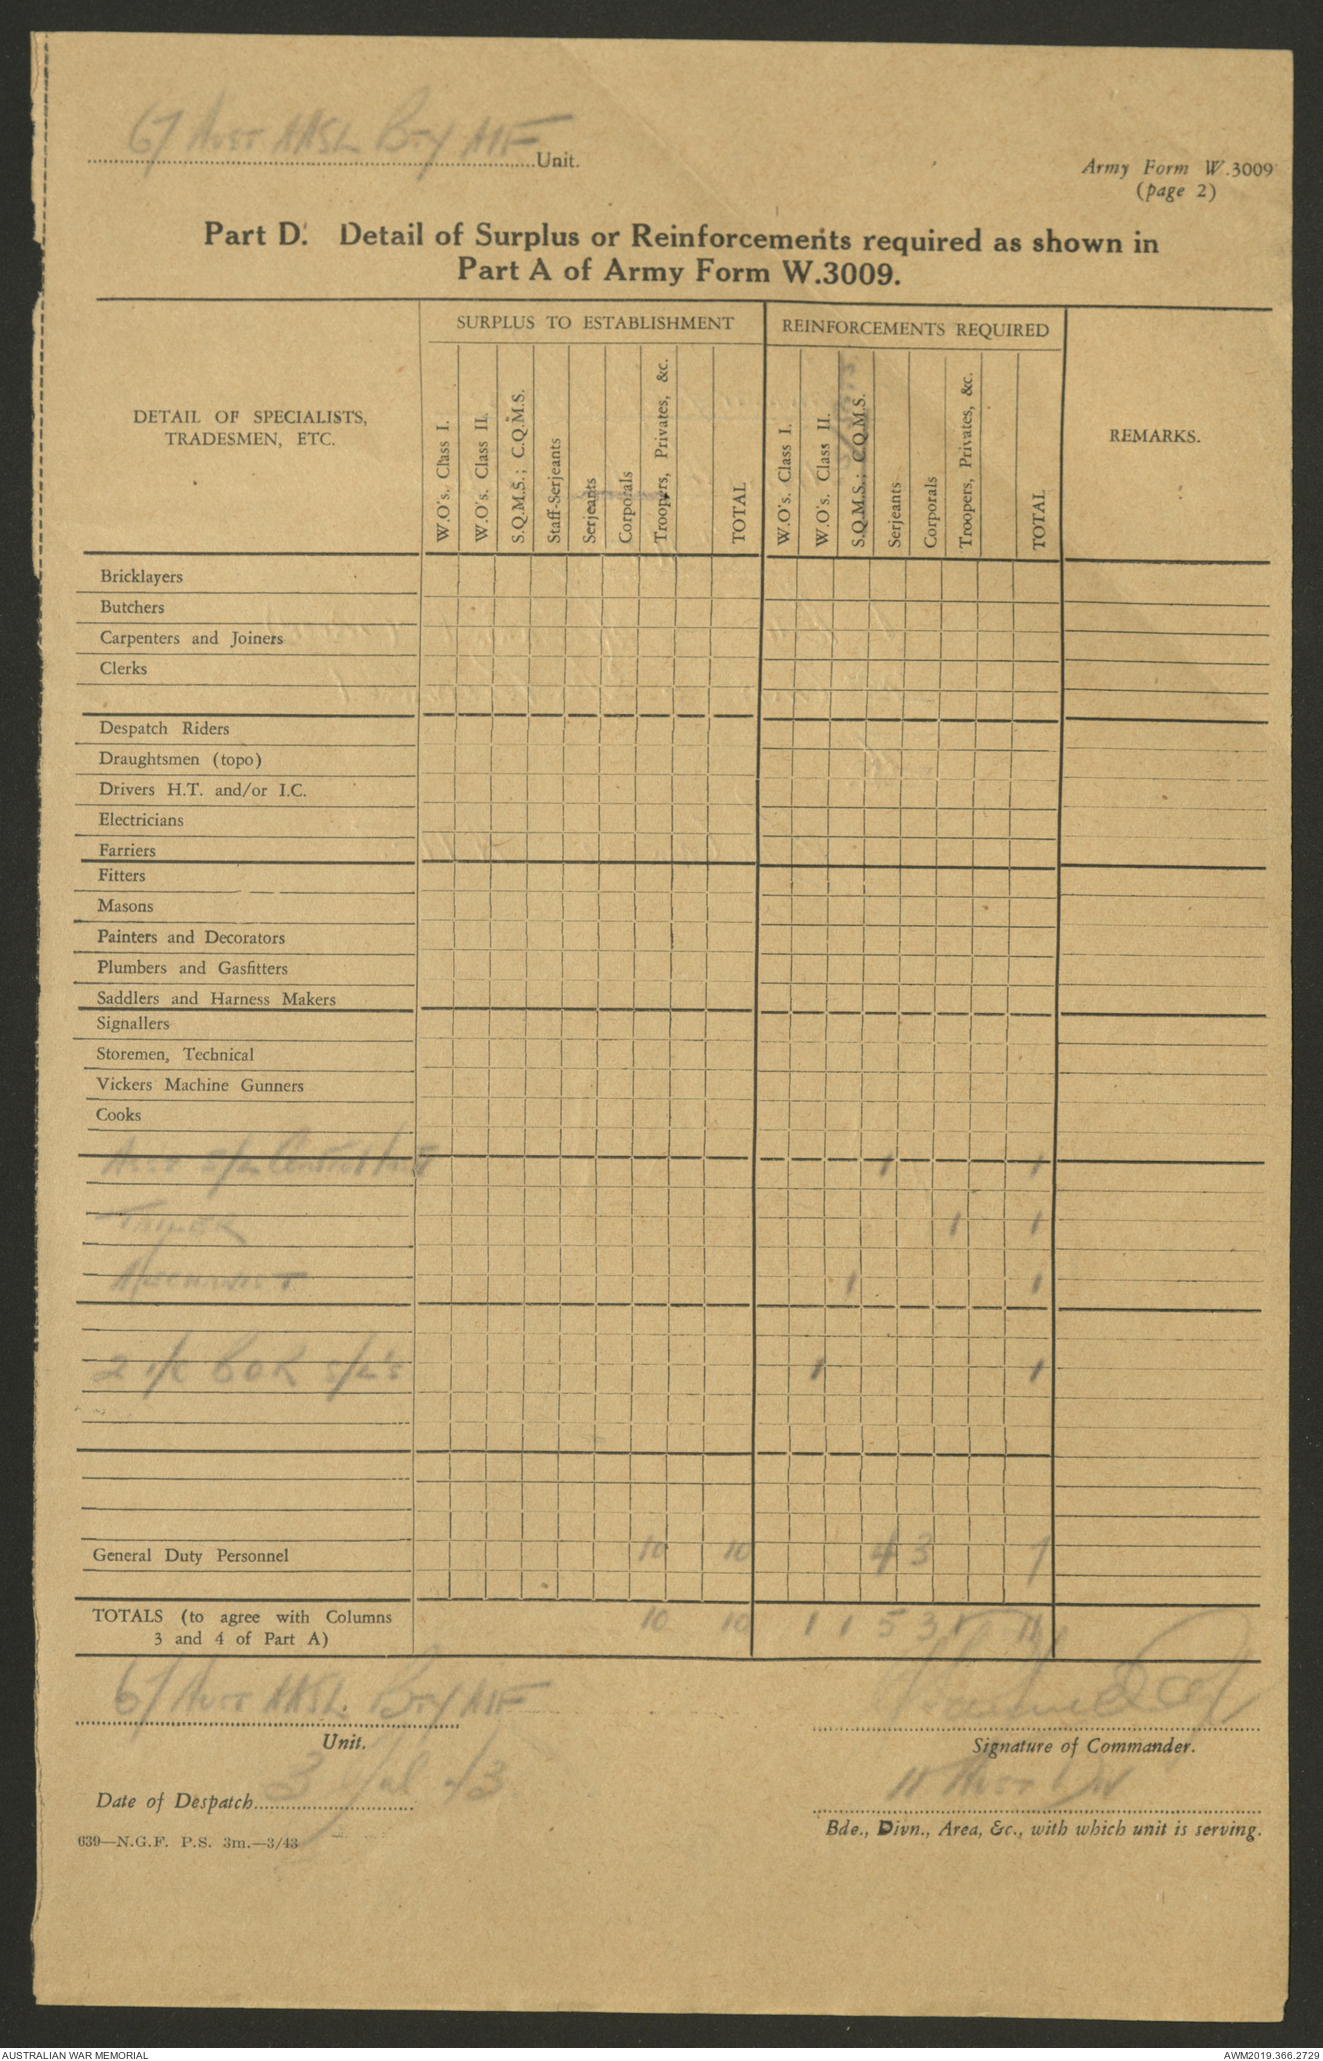 67 Aust AASL Bty AIF Unit.
Army Form W.3009
(page 2)
Part D. Detail of Surplus or Reinforcements required as shown in
Part A of Army Form W.3009.
SURPLUS TO ESTABLISHMENT
REINFORCEMENTS REQUIRED
DETAIL OF SPECIALISTS,
TRADESMEN, ETC.
W.O's. Class I.
W.O's. Class II.
S.Q.M.S.; C.Q.M.S.
Staff-Serjeants
Serjeants
Corporals
Troopers, Privates, &c.
TOTAL
W.O's. Class I.
W.O's. Class II.
S.Q.M.S.; C.Q.M.S.
Serjeants
Corporals
Troopers, Privates, &c.
TOTAL
REMARKS.
Bricklayers
Butchers
Carpenters and Joiners
Clerks
Despatch Riders
Draughtsmen (topo)
Drivers H.T. and/or I.C.
Electricians
Farriers
Fitters
Masons
Painters and Decorators
Plumbers and Gasfitters
Saddlers and Harness Makers
Signallers
Storemen, Technical
Vickers Machine Gunners
Cooks
S/L 1 1
1 1
1 1
2 i/c S/L's 1 1
General Duty Personnel 10 10 4 3 7
TOTALS (to agree with Columns
3 and 4 of Part A) 10 10 1 1 5 3 1 11
67 Aust AASL Bty AIF
Unit.
Signature of Commander.
Date of Despatch 3 Jul 43
11 Aust Div
Bde., Divn., Area, &c., with which unit is serving.
639—N.G.F. P.S. 3m.—3/43
AUSTRALIAN WAR MEMORIAL
AWM2019.366.2729